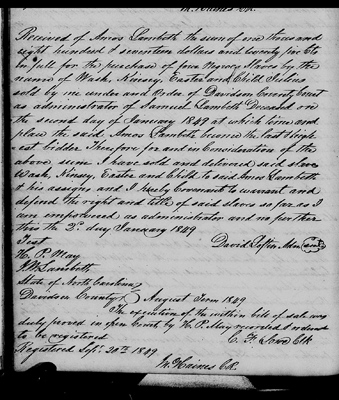 M. Haines Ck.
Received of Amos Lambeth the sum of one thousand
eight hundred & seventeen dollars and twenty five Cts
in full for the purchase of four Negroe Slaves by the
names of Wash, Kinsey, Easter and Child Julius
sold by me under and Order of Davidson County Court
as administrator of Samuel Lambeth Deceased on
the second day of January 1849 at which time and
place the said Amos Lambeth became the last & high-
est bidder Therefore for and in Consideration of the
above sum I have sold and delivered said slaves
Wash, Kinsey, Easter and Child to said Amos Lambeth
& his assigns and I hereby Covenant to warrant and
defend the right and title of said slaves so far as I
am empowered as administrator and no further
this the 2d day January 1849
David Loftin Adm
Test
H. P. May
Lambeth
State of North Carolina
Davidson County August Term 1849
The execution of the within bill of sale was
duly proved in open Court by H. P. May recorded & ordered
to be registered
C. F. Lowe Clk
Registered Sept. 20th 1849
M. Haines CR.